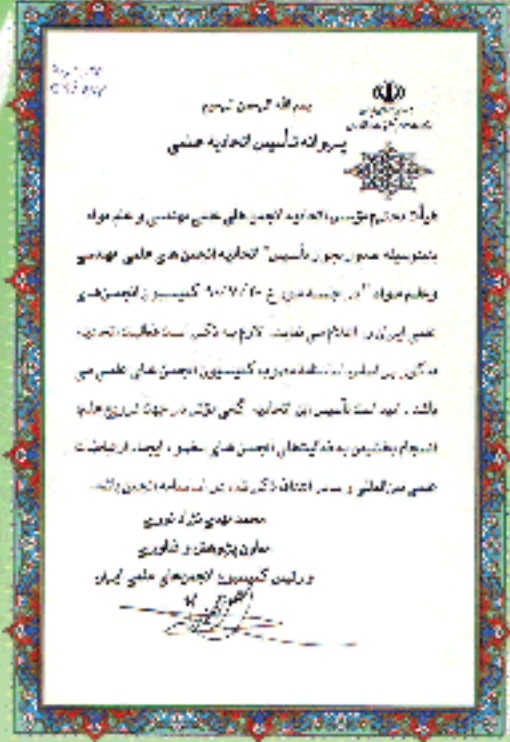 بسم الله الرحمن الرحیم
پروانه تأسیس اتحادیه علمی
هیأت محترم مؤسس اتحادیه انجمن های علمی مهندسی و علم مواد
بدینوسیله صدور مجوز تأسیس " اتحادیه انجمن های علمی مهندسی
وعلم مواد " در جلسه مورخ ۹۰/۷/۲۰ کمیسیون انجمن های
علمی ایران را اعلام می نماید. لازم به ذکر است فعالیت اتحادیه
مذکور بر اساس اساسنامه مصوب کمیسیون انجمن های علمی می
باشد . امید است تأسیس این اتحادیه گامی مؤثر در جهت ترویج علم،
انسجام بخشیدن به فعالیتهای انجمن های عضو ، ایجاد ارتباطات
علمی بین المللی و سایر اهداف ذکر شده در اساسنامه انجمن باشد.
محمد مهدی نژاد نوری
معاون پژوهش و فناوری
و رئیس کمیسیون انجمن های علمی ایران